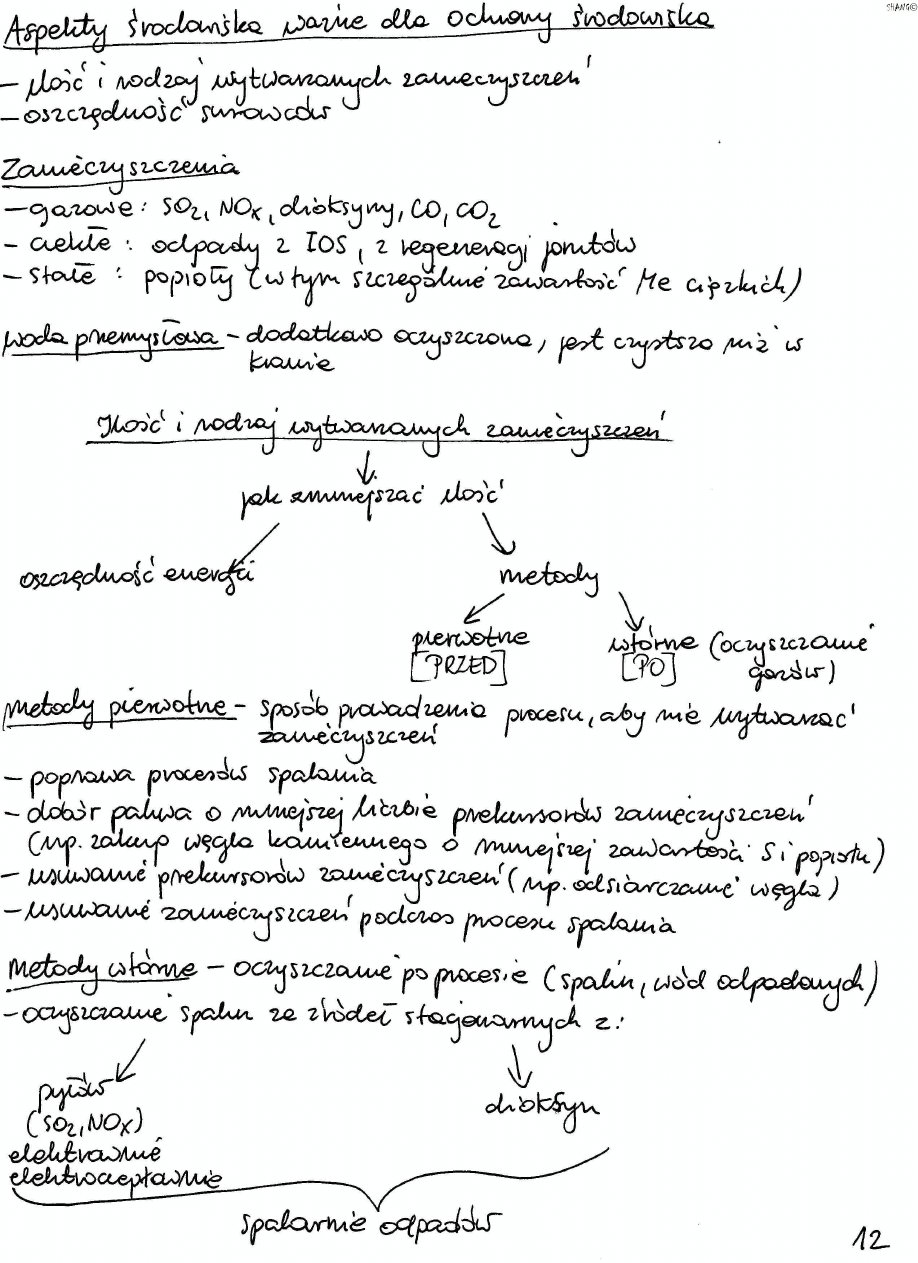 SHANG©
Aspekty środowiska ważne dla ochrony środowiska
- ilość i rodzaj wytwarzanych zanieczyszczeń
- oszczędność surowców
Zanieczyszczenia
- gazowe: SO₂, NOₓ, dioksyny, CO, CO₂
- ciekłe: odpady z IOS, z regeneracji jonitów
- stałe: popioły (w tym szczególnie zawartość Me ciężkich)
woda przemysłowa - dodatkowo oczyszczona, jest czystsza niż w
kranie
Ilość i rodzaj wytwarzanych zanieczyszczeń
jak zmniejszać ilość
oszczędność energii metody
pierwotne wtórne (oczyszczanie
[PRZED] [PO] gazów)
Metody pierwotne - sposób prowadzenia procesu, aby nie wytwarzać
zanieczyszczeń
- poprawa procesów spalania
- dobór paliwa o mniejszej liczbie prekursorów zanieczyszczeń
(np. zakup węgla kamiennego o mniejszej zawartości S i popiołu)
- usuwanie prekursorów zanieczyszczeń (np. odsiarczanie węgla)
- usuwanie zanieczyszczeń podczas procesu spalania
Metody wtórne - oczyszczanie po procesie (spalin, wód odpadowych)
- oczyszczanie spalin ze źródeł stacjonarnych z:
pyłów dioksyn
(SO₂, NOₓ)
elektrownie
elektrociepłownie
spalarnie odpadów
12